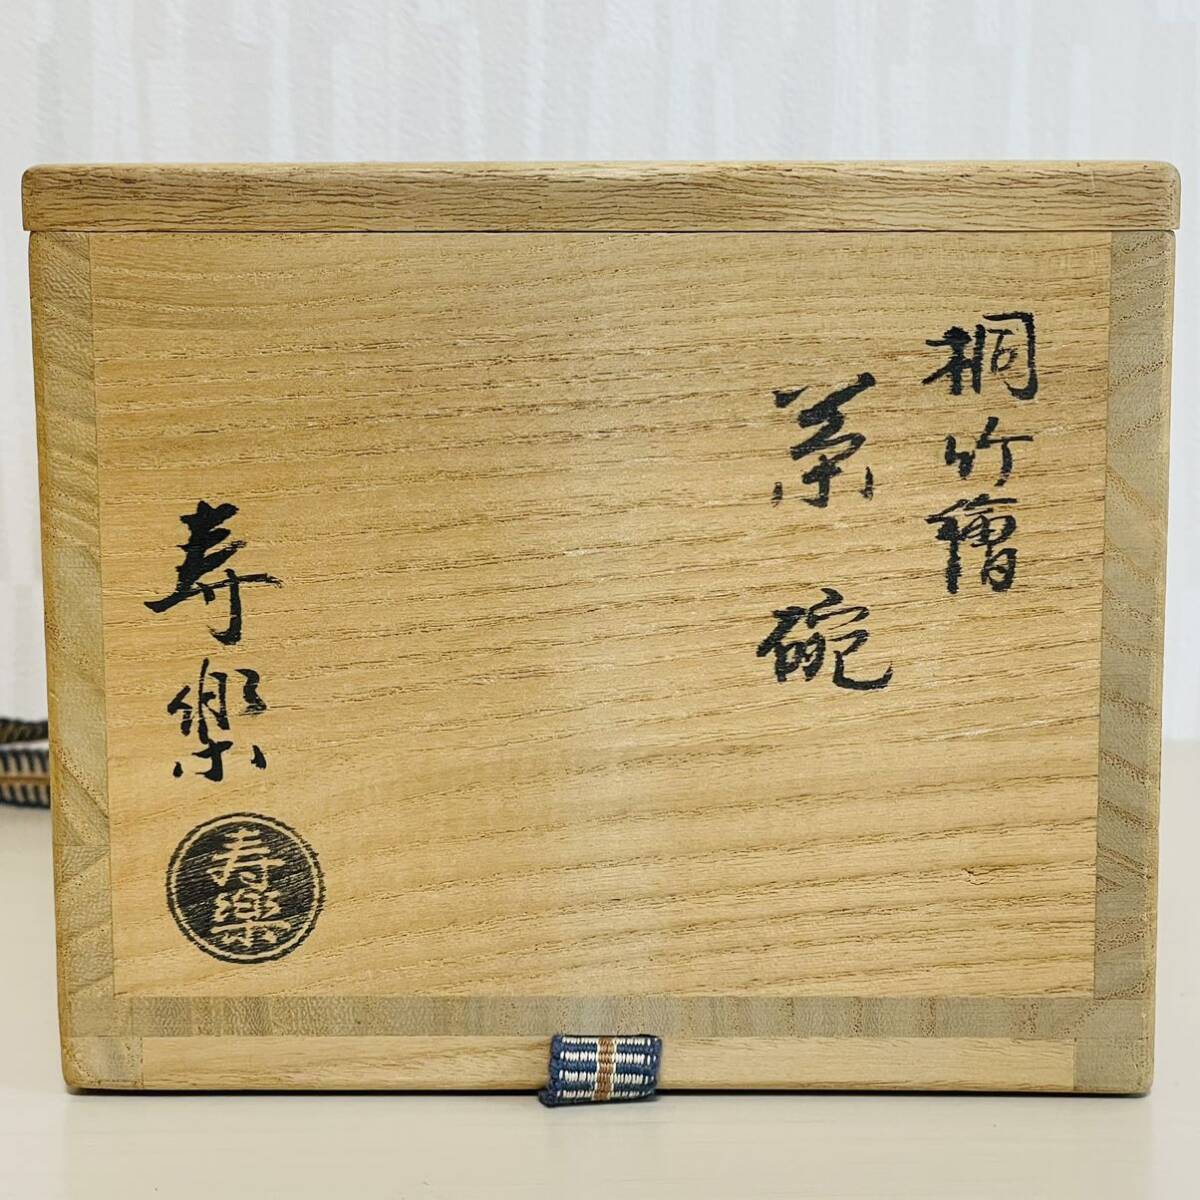 桐竹繪
茶碗
寿樂
寿樂